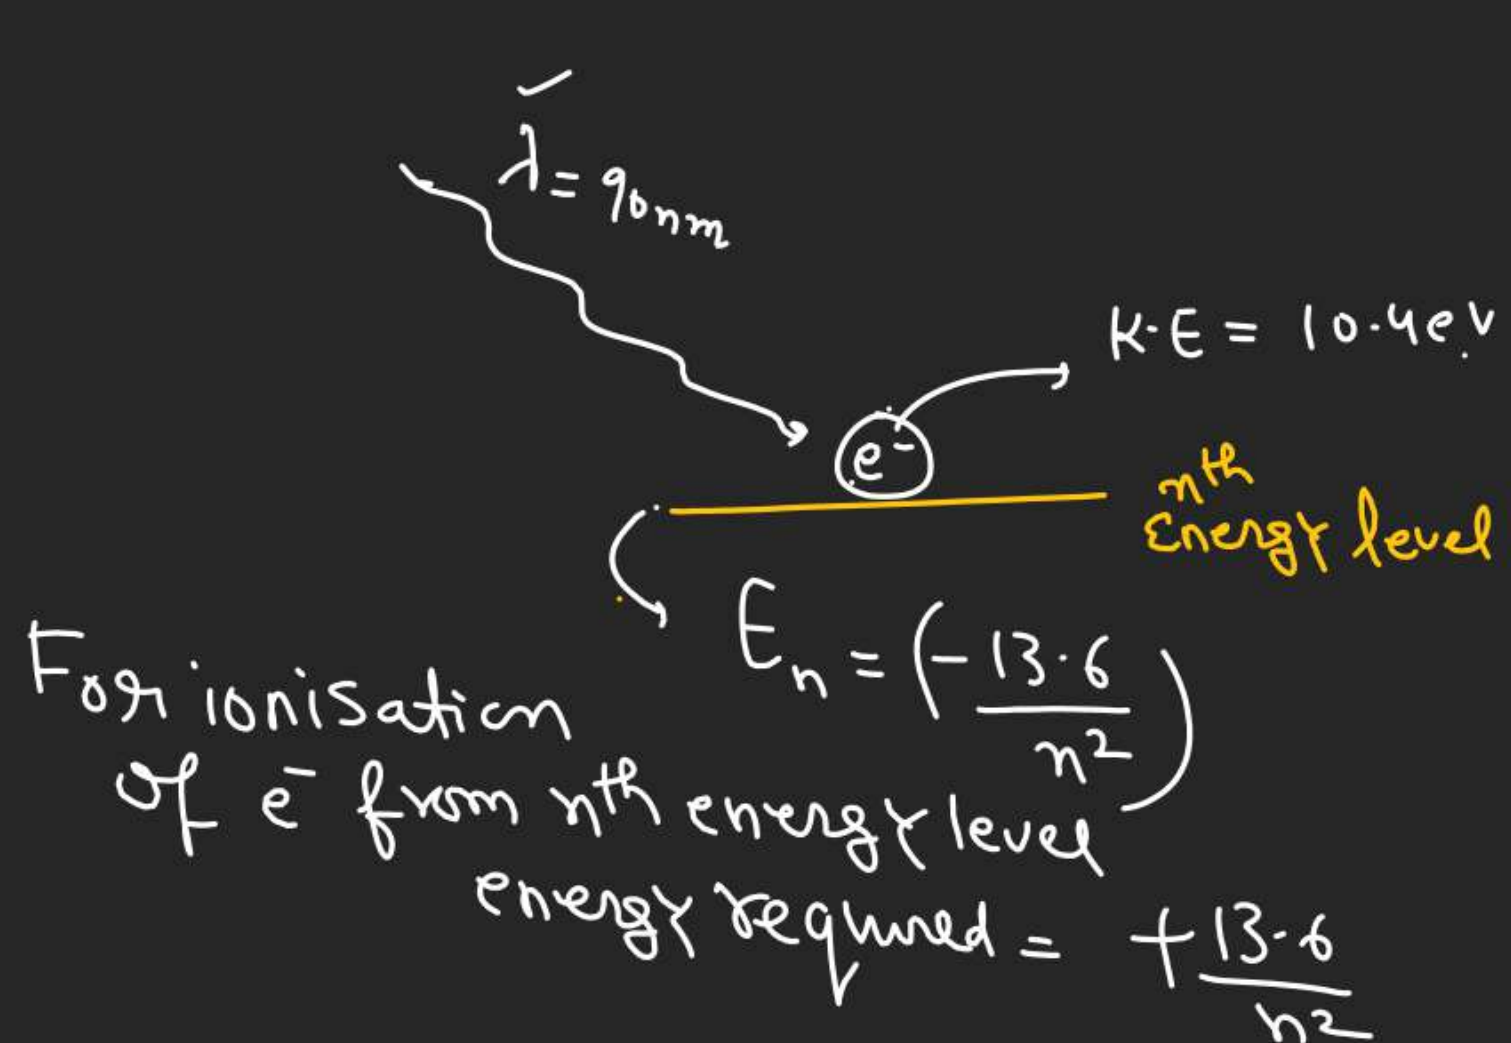 λ = 90nm
K.E = 10.4eV
e⁻
nth
Energy level
Eₙ = (-13.6/n²)
For ionisation
of e⁻ from nth energy level
energy required = +13.6/n²